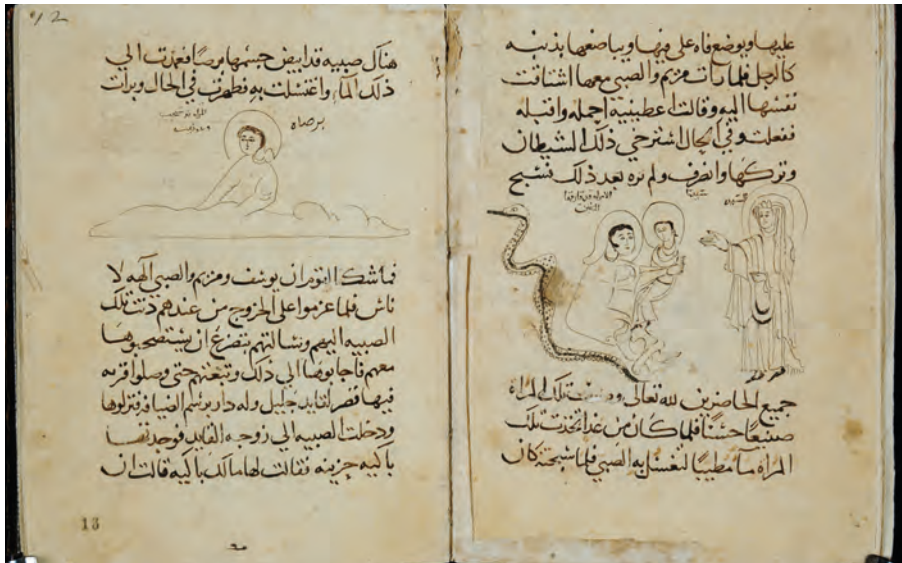 عليها ويوضع فاه على فيها ويباضعها بذنبه
كالرجل فلما رات مريم والصبي معها اشتاقت
نفسها اليه وقالت اعطينية احمله واقبله
ففعلت وفي الحال استرخي ذلك الشيطان
وتركها وانصرف ولم تره بعد ذلك فسبح
السيده
جميع الحاضرين لله تعالى وصنعت تلك المراه
صنيعا حسنا فلما كان من غد اتخذت تلك
المراه مآ مطيبا لتغسل به الصبي فلما سبحته كان
هناك صبيه قد ابيض جسمها برصا فعمدت الي
ذلك المآء واغتسلت به فطهرت في الحال وبرات
برصاه
فما شك القوم ان يوسف ومريم والصبي الهه لا
ناس فلما عزموا على الخروج من عندهم دنت تلك
الصبيه اليهم وسالتهم بتضرع ان يستصحبوها
معهم فاجابوها الي ذلك وتبعتهم حتى وصلوا قريه
فيها قصر لقايد جليل وله دار برسم الضيافه فنزلوها
ودخلت الصبيه الي زوجه القايد فوجدتها
باكيه حزينه فقالت لها مالك باكيه قالت ان
13